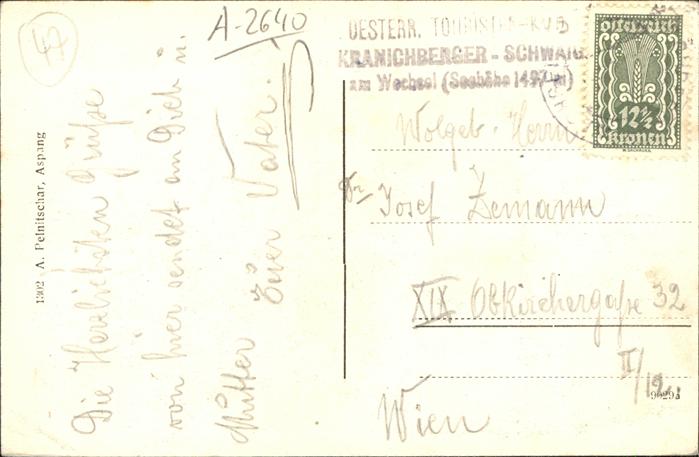 A-2640
OESTERR. TOURISTEN-KLUB
KRANICHBERGER - SCHWAIG
am Wechsel (Seehöhe 1497m)
12½
Kronen
1302 A. Pelnitschar, Aspang
Die Herzlichsten Grüße
von hier sendet an Dich u.
Mutter Euer Vater.
Wolgeb. Herrn
Dr
Josef Zemann
XIX Obkirchergaße 32
II/12.
Wien